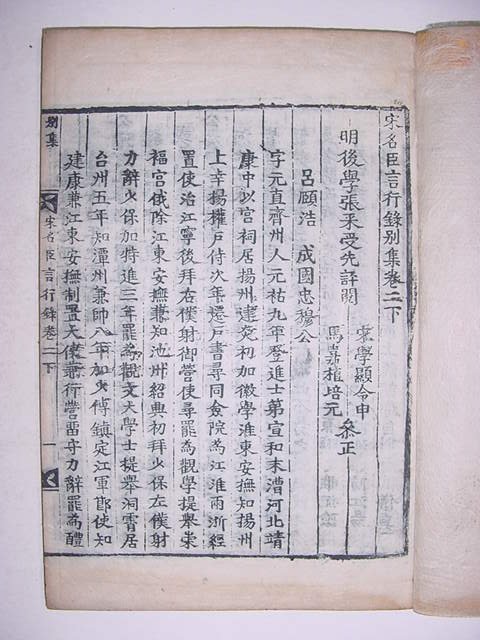 宋名臣言行錄别集卷二下
明後學張采受先評閱
宋學顯令申
馬嘉植培元 叅正
呂頤浩 成國忠穆公
字元直齊州人元祐九年登進士第宣和末漕河北靖
康中以宫祠居揚州建炎初加徽學淮東安撫知揚州
上幸揚擢戸侍次年遷戸書尋同僉院為江淮兩浙經
置使治江寧後拜右僕射御營使尋罷為觀學提舉崇
福宫俄除江東安撫兼知池州紹興初拜少保左僕射
力辭少保加特進三年罷為觀文大學士提舉洞霄居
台州五年知潭州兼帥八年加少傅鎮定江軍節使知
建康兼江東安撫制置大使兼行營留守力辭罷為醴
别集
宋名臣言行錄 卷二下
一